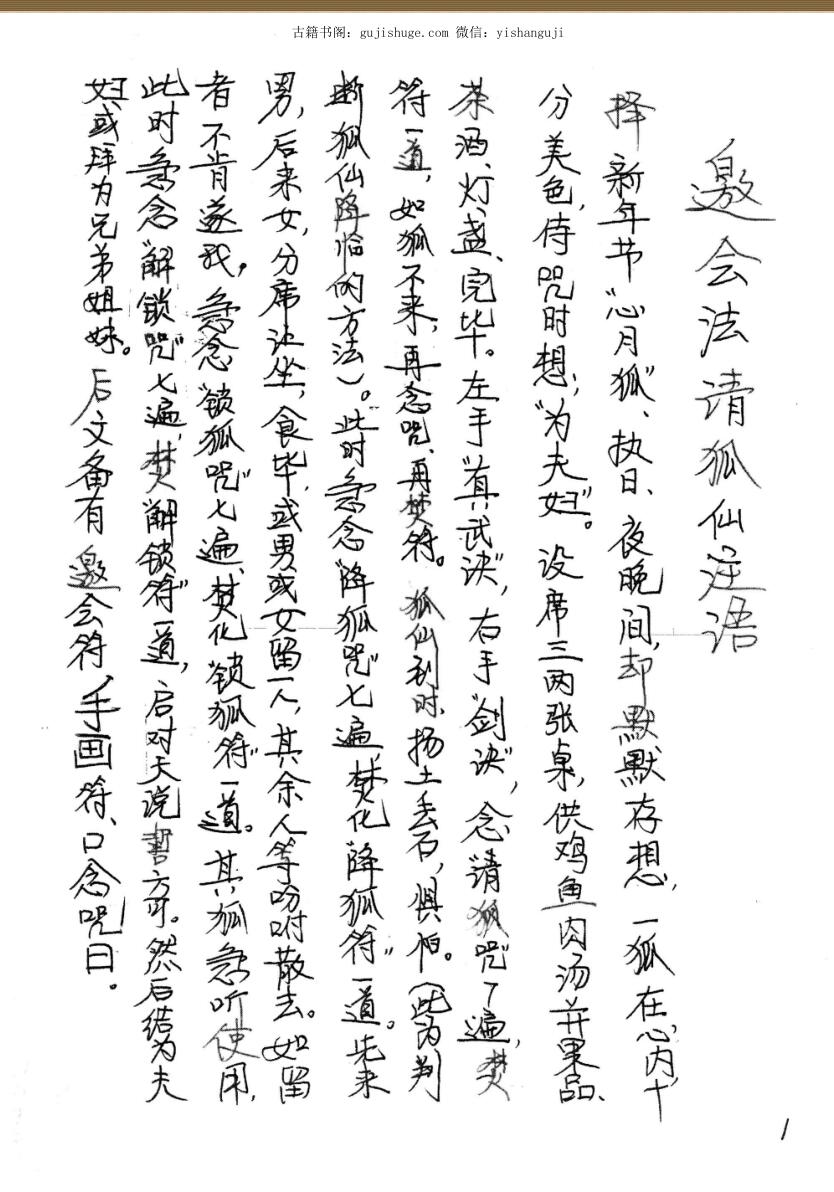 古籍书阁：gujishuge.com 微信：yishanguji
邀会法请狐仙注语
择新年节“心月狐”、执日、夜晚间，却默默存想，一狐在心内，十
分美色，侍咒时想；“为夫妇”。设席三两张桌，供鸡鱼肉汤并果品、
茶酒、灯盏、完毕。左手“真武诀”，右手“剑诀”，念“请狐咒”了遍，焚
符一道，如狐不来，再念咒、再焚符。狐仙到时、扬土丢石，惧怕。（此为判
断狐仙降临的方法）。此时急念“降狐咒”七遍，焚化“降狐符”一道。先来
男，后来女，分席让坐，食毕，或男或女留一人，其余人等吩咐散去。如留
者不肯遂我，急念“锁狐咒”七遍、焚化“锁狐符”一道。其狐急听使用，
此时急念“解锁咒”七遍，焚“解锁符”一道，启对天说誓方可。然后结为夫
妇或拜为兄弟姐妹。后文备有邀会符，手画符、口念咒曰。
1